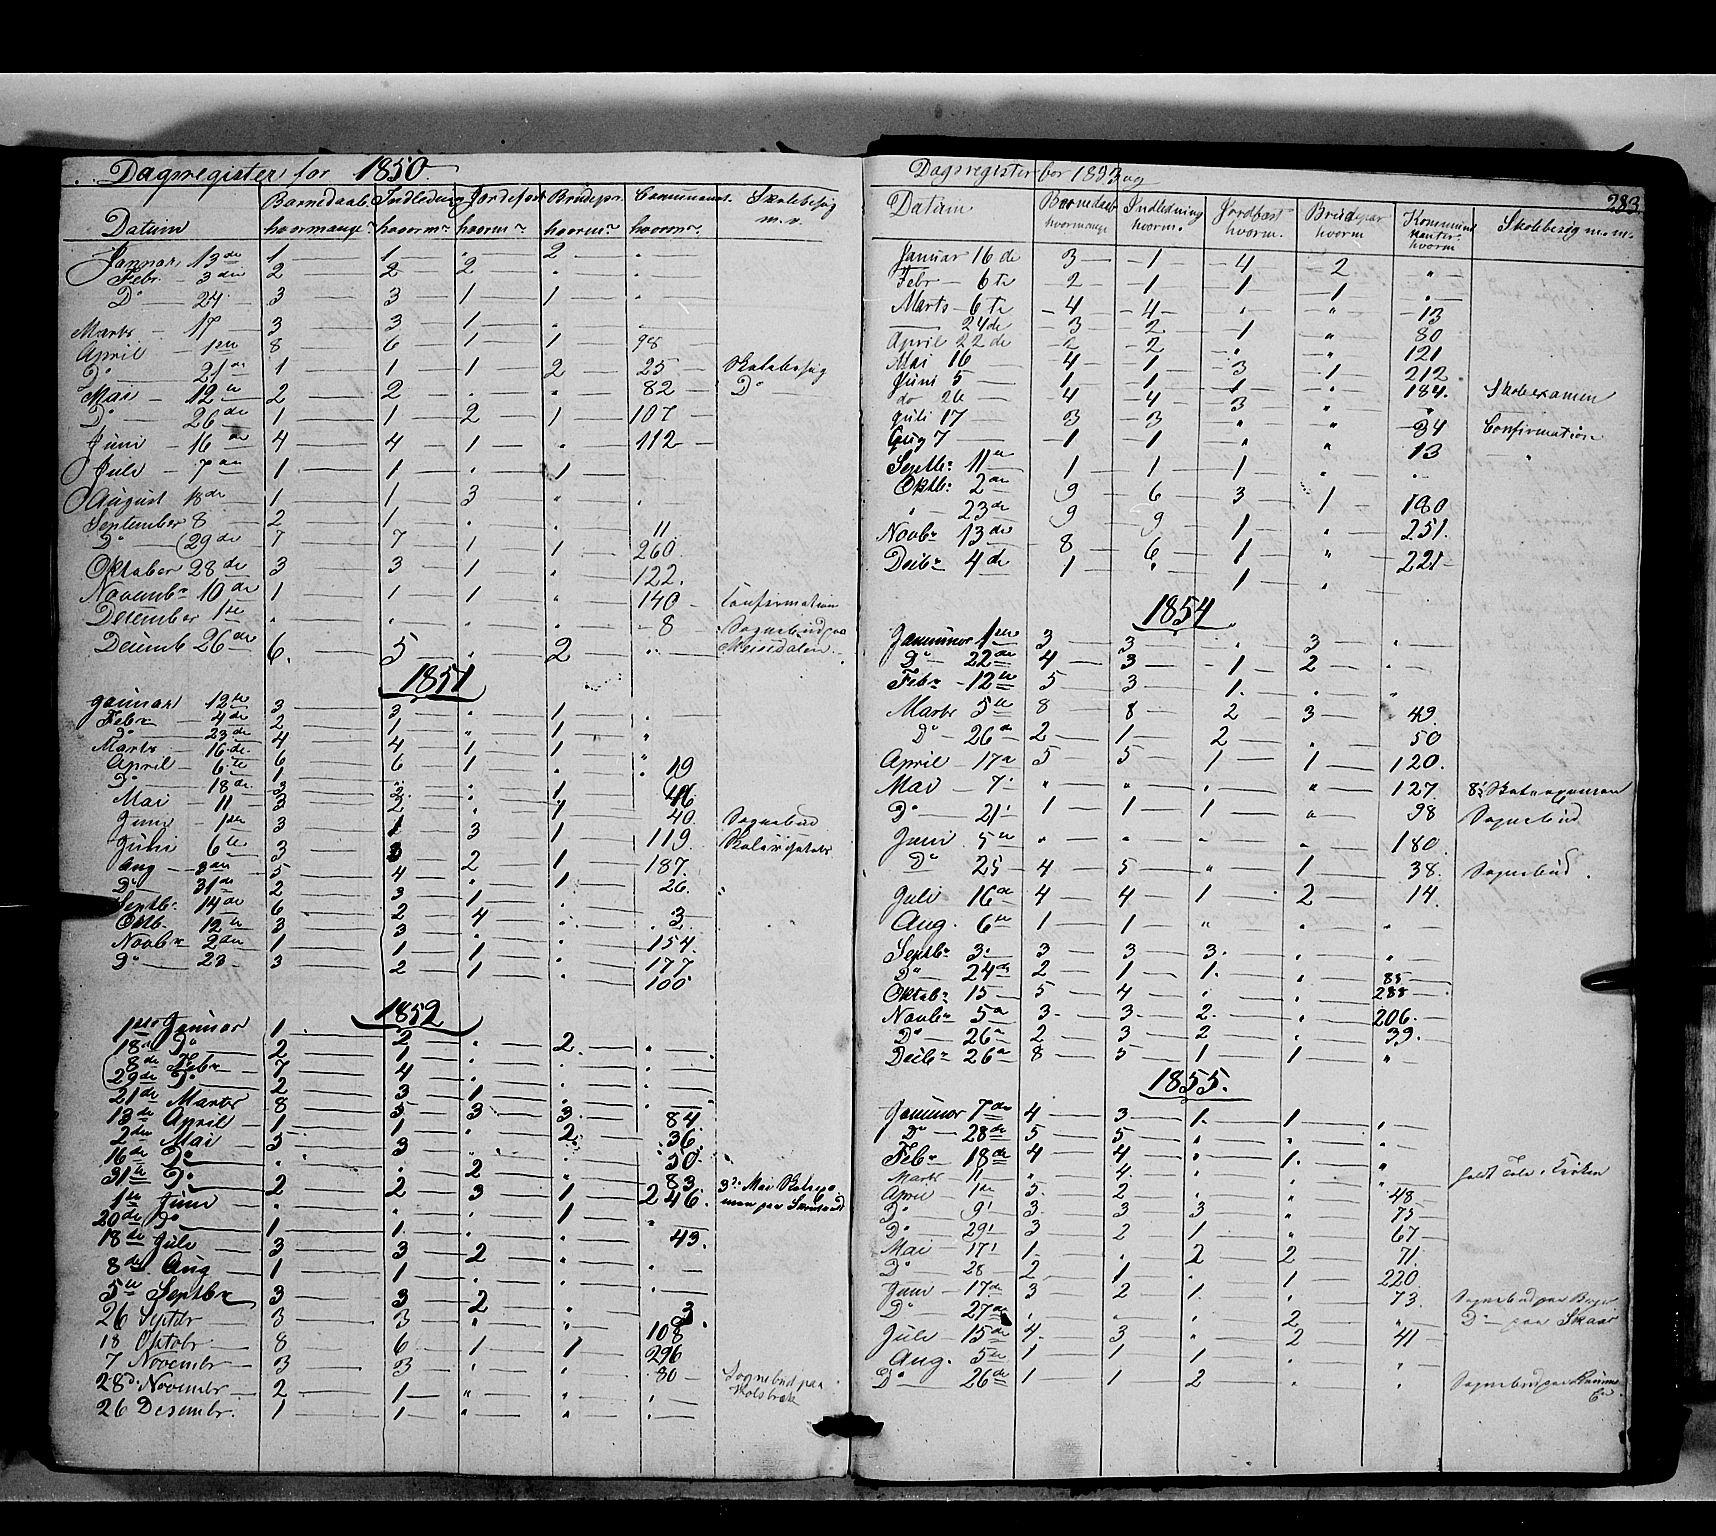 Dagsregister for 1850.
Datum Barnedaab hvormange Indledning hvorm Jordefæst hvorm Brudepr. hvorm Communans. hvorm Skolebesøg m.v.
Januar 13de 1 1 . 2 .
Febr. 3die 2 2 2 . .
Do 24 3 3 1 1 .
Marts 17 3 3 1 . .
April 1ste 8 6 1 1 98
Do 21de 1 1 1 2 25 Skolebesøg
Mai 12te 2 2 . . 82 Do
Do 26de 1 1 2 1 107
Juni 16de 4 4 1 . 112
Juli 7de 1 1 . 1 .
August 18de 1 1 3 . .
September 8 2 1 . . 11
Do 29de 7 7 1 1 260
Oktober 28de 3 3 1 . 122.
Novembr 10de 1 1 1 . 140 Confirmation
December 1ste . . . . 8 Sognebud paa
Decemb 26de 6. 5 . 2
1851
Januar 12te 3 3 . 1 .
Febr 4de 2 1 . 1 .
Do 23de 4 4 1 1 "
Marts 16de 6 6 1 1 .
April 6te 1 . . . 19
Do 18de 3 2 . 1 46
Mai 11 3 2 . 1 40. Sognebud
Juni 1ste 3 1 3 1 119
Juli 6te 3 3 2 1 187.
Aug 3die 5 4 . 1 26.
Do 31de 2 3 1 . .
Septbr. 14de 6 2 4 . 3
Oktb. 12te 3 3 . . 154
Novbr 2den 1 1 1 . 177
Do 23 3 2 1 . 100
1852
1ste Januar 1 2 . 2 .
18de Do 2 1 . . .
8de Febr 7 4 . . .
29de Do 2 3 1 . .
21de Marts 8 5 3 3 84.
13de April 1 1 . 2 36.
2den Mai 3 3 . . 50
16de Do . . 2 . 83
31te Do 2 2 3 1 246. 3die Mai
1ste Juni . . . 1 "
20de Do 1 1 . . 43.
18de Juli 3 3 2 . .
8de Aug 1 1 . . .
5te Septbr 3 3 2 . 3
26 Septbr 3 3 . . 108
18 Oktobr 8 6 1 1 296
7 Novembr 3 3 . . 80 Sognebud paa
28d. Novembr 2 1 " . . Holsbræk
26 Desembr. 1 1 . . .
283
Dagsregister for 1853
Datum Barnedaab hvormange Indledning hvorm. Jordfæst hvorm. Brudpar hvorm Kommunikanter hvorm Skolebesøg m.m.
Januar 16de 3 1 4 2 "
Febr 6te 2 1 1 1 .
Marts 6te 4 4 . " 13
24de 3 2 1 " 80
April 22de 2 2 . " 121
Mai 16 4 1 3 1 212.
Juni 5 1 1 1 . 184. Skoleexamen
do 26 4 4 3 " "
Juli 17 3 3 " " 34 Confirmation
Aug 7 1 1 . . 13 "
Septbr. 11te 1 1 1 " .
Oktbr 2den 9 6 3 1 180
" 23de 9 9 1 . 251.
Novbr 13de 8 6 1 " 221
Decbr 4de 1 " 1 .
1854
Januar 1ste 3 3 . 3 .
Do 22de 4 3 1 2 .
Febr 12te 5 3 1. . "
Marts 5te 8 8 2 3 49.
Do 26de 2 1 2 . 50
April 17de 5 5 1 1 120.
Mai 7 " " . " 127 8de Skoleexamen
Do 21 1 1 1 " 98 Sognebud
Juni 5te " " . . 180.
Do 25 4 5 " 1 38. Sognebud.
Juli 16de 4 4 1 2 14.
Aug. 6te 1 1 " . .
Septbr 3 3 3 3. . "
Do 24de 2 1 1. . 85
Oktobr 15 5 4 . . 288
Novbr 5te 3. 3. 2. . 206.
Do 26de 2 3 2 . 39.
Decbr 26de 8 5 1 1 "
1855.
Januar 7de 4 3 1. 1 .
Do 28de 5 5 . . .
Febr 18de 4 4 . 1. "
Marts 11 . 4. . . . holdt Tale i Kirken
April 1ste 5. 2 . . 48
Do 9 3. 3 3 " 75
Do 29 3 2 1 . 67
Mai 17 1. . 2 2 71.
Do 28 2 1 . 1 220
Juni 17de 3 2 1. . 73. Sognebud paa
Do 27de . . . 2 . Do paa Skaar
Juli 15de 4. 3 . 2 41
Aug. 5te 1 1 1 . .
Do 26de 1 1 2 . . Sognebud paa